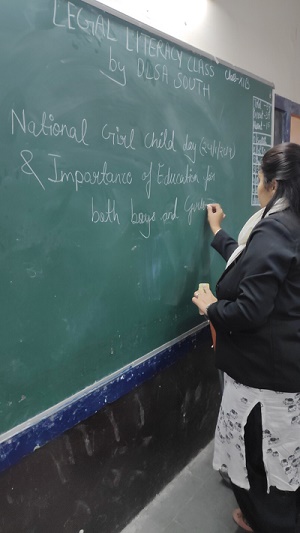 LEGAL LITERACY CLASS
by DLSA SOUTH
National Girl Child day
& Importance of Education for
both boys and